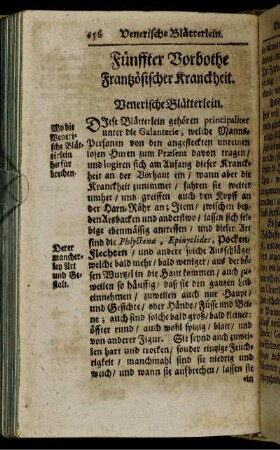 656 Venerische Blätterlein.
Fünffter Vorbothe
Frantzösischer Kranckheit.
Venerische Blätterlein.
Wo die
Veneri-
sche Blät-
terlein
herfür
brechen.
DIese Blätterlein gehören principaliter
unter die Galanterie, welche Manns-
Personen von den angesteckten unreinen
losen Huren zum Præsent davon tragen/
und logiren sich am Anfang dieser Kranck-
heit an der Vorhaut ein/ wann aber die
Kranckheit zunimmet/ fahren sie weiter
umher/ und greiffen auch den Kopff an
der Harn-Röhr an; Item/ zwischen bey-
den Arsbacken und anderstwo/ lassen sich sel-
bige ebenmässig antreffen/ und dieser Art
sind die Phlyctenæ, Epinyctides, Pocken/
Flechten/ und andere solche Ausschläge/
welche bald mehr/ bald weniger/ aus der bö-
sen Wurzel in die Haut kommen/ auch zu-
weilen so häuffig/ daß sie den gantzen Leib
einnehmen/ zuweilen auch nur Haupt/
und Gesichte/ oder Hände/ Füsse und Bei-
ne; auch sind solche bald groß/ bald kleiner/
öffter rund/ auch wohl spitzig/ platt/ und
von anderer Figur. Sie seynd auch zuwei-
len hart und trocken/ sonder eintzige Feuch-
tigkeit/ manchmahl sind sie niedrig und
weich/ und wann sie aufbrechen/ lassen sie
ein
Derer
mancher-
ley Art
und Ge-
stalt.